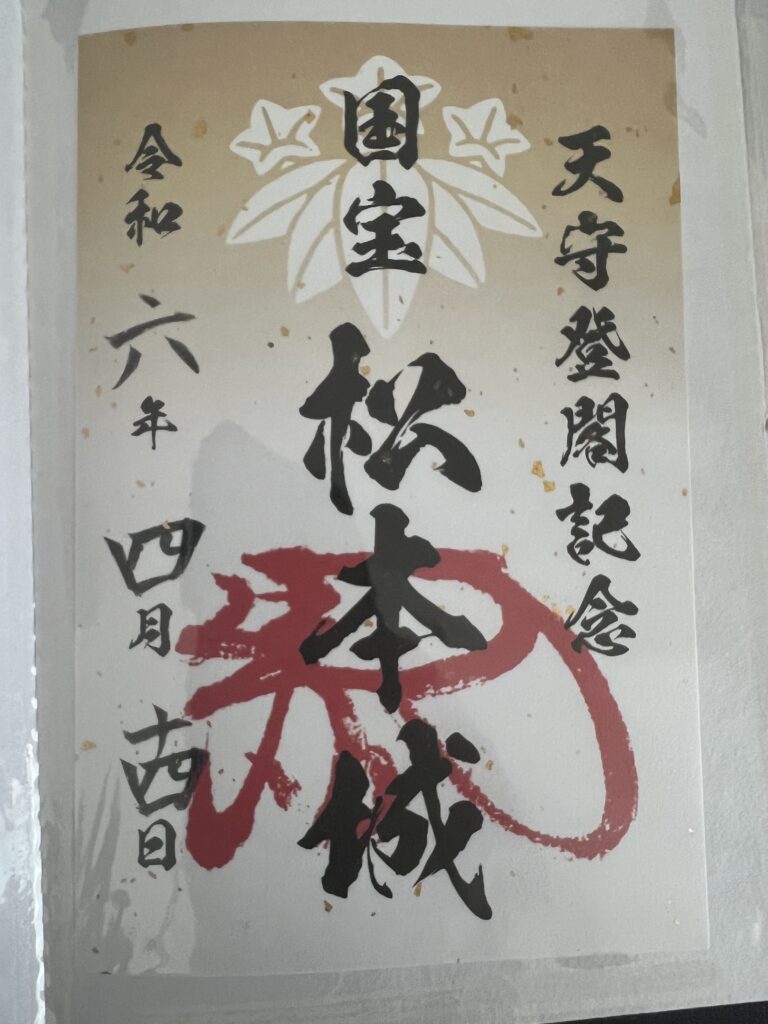 天守登閣記念
国宝 松本城
令和六年四月十四日